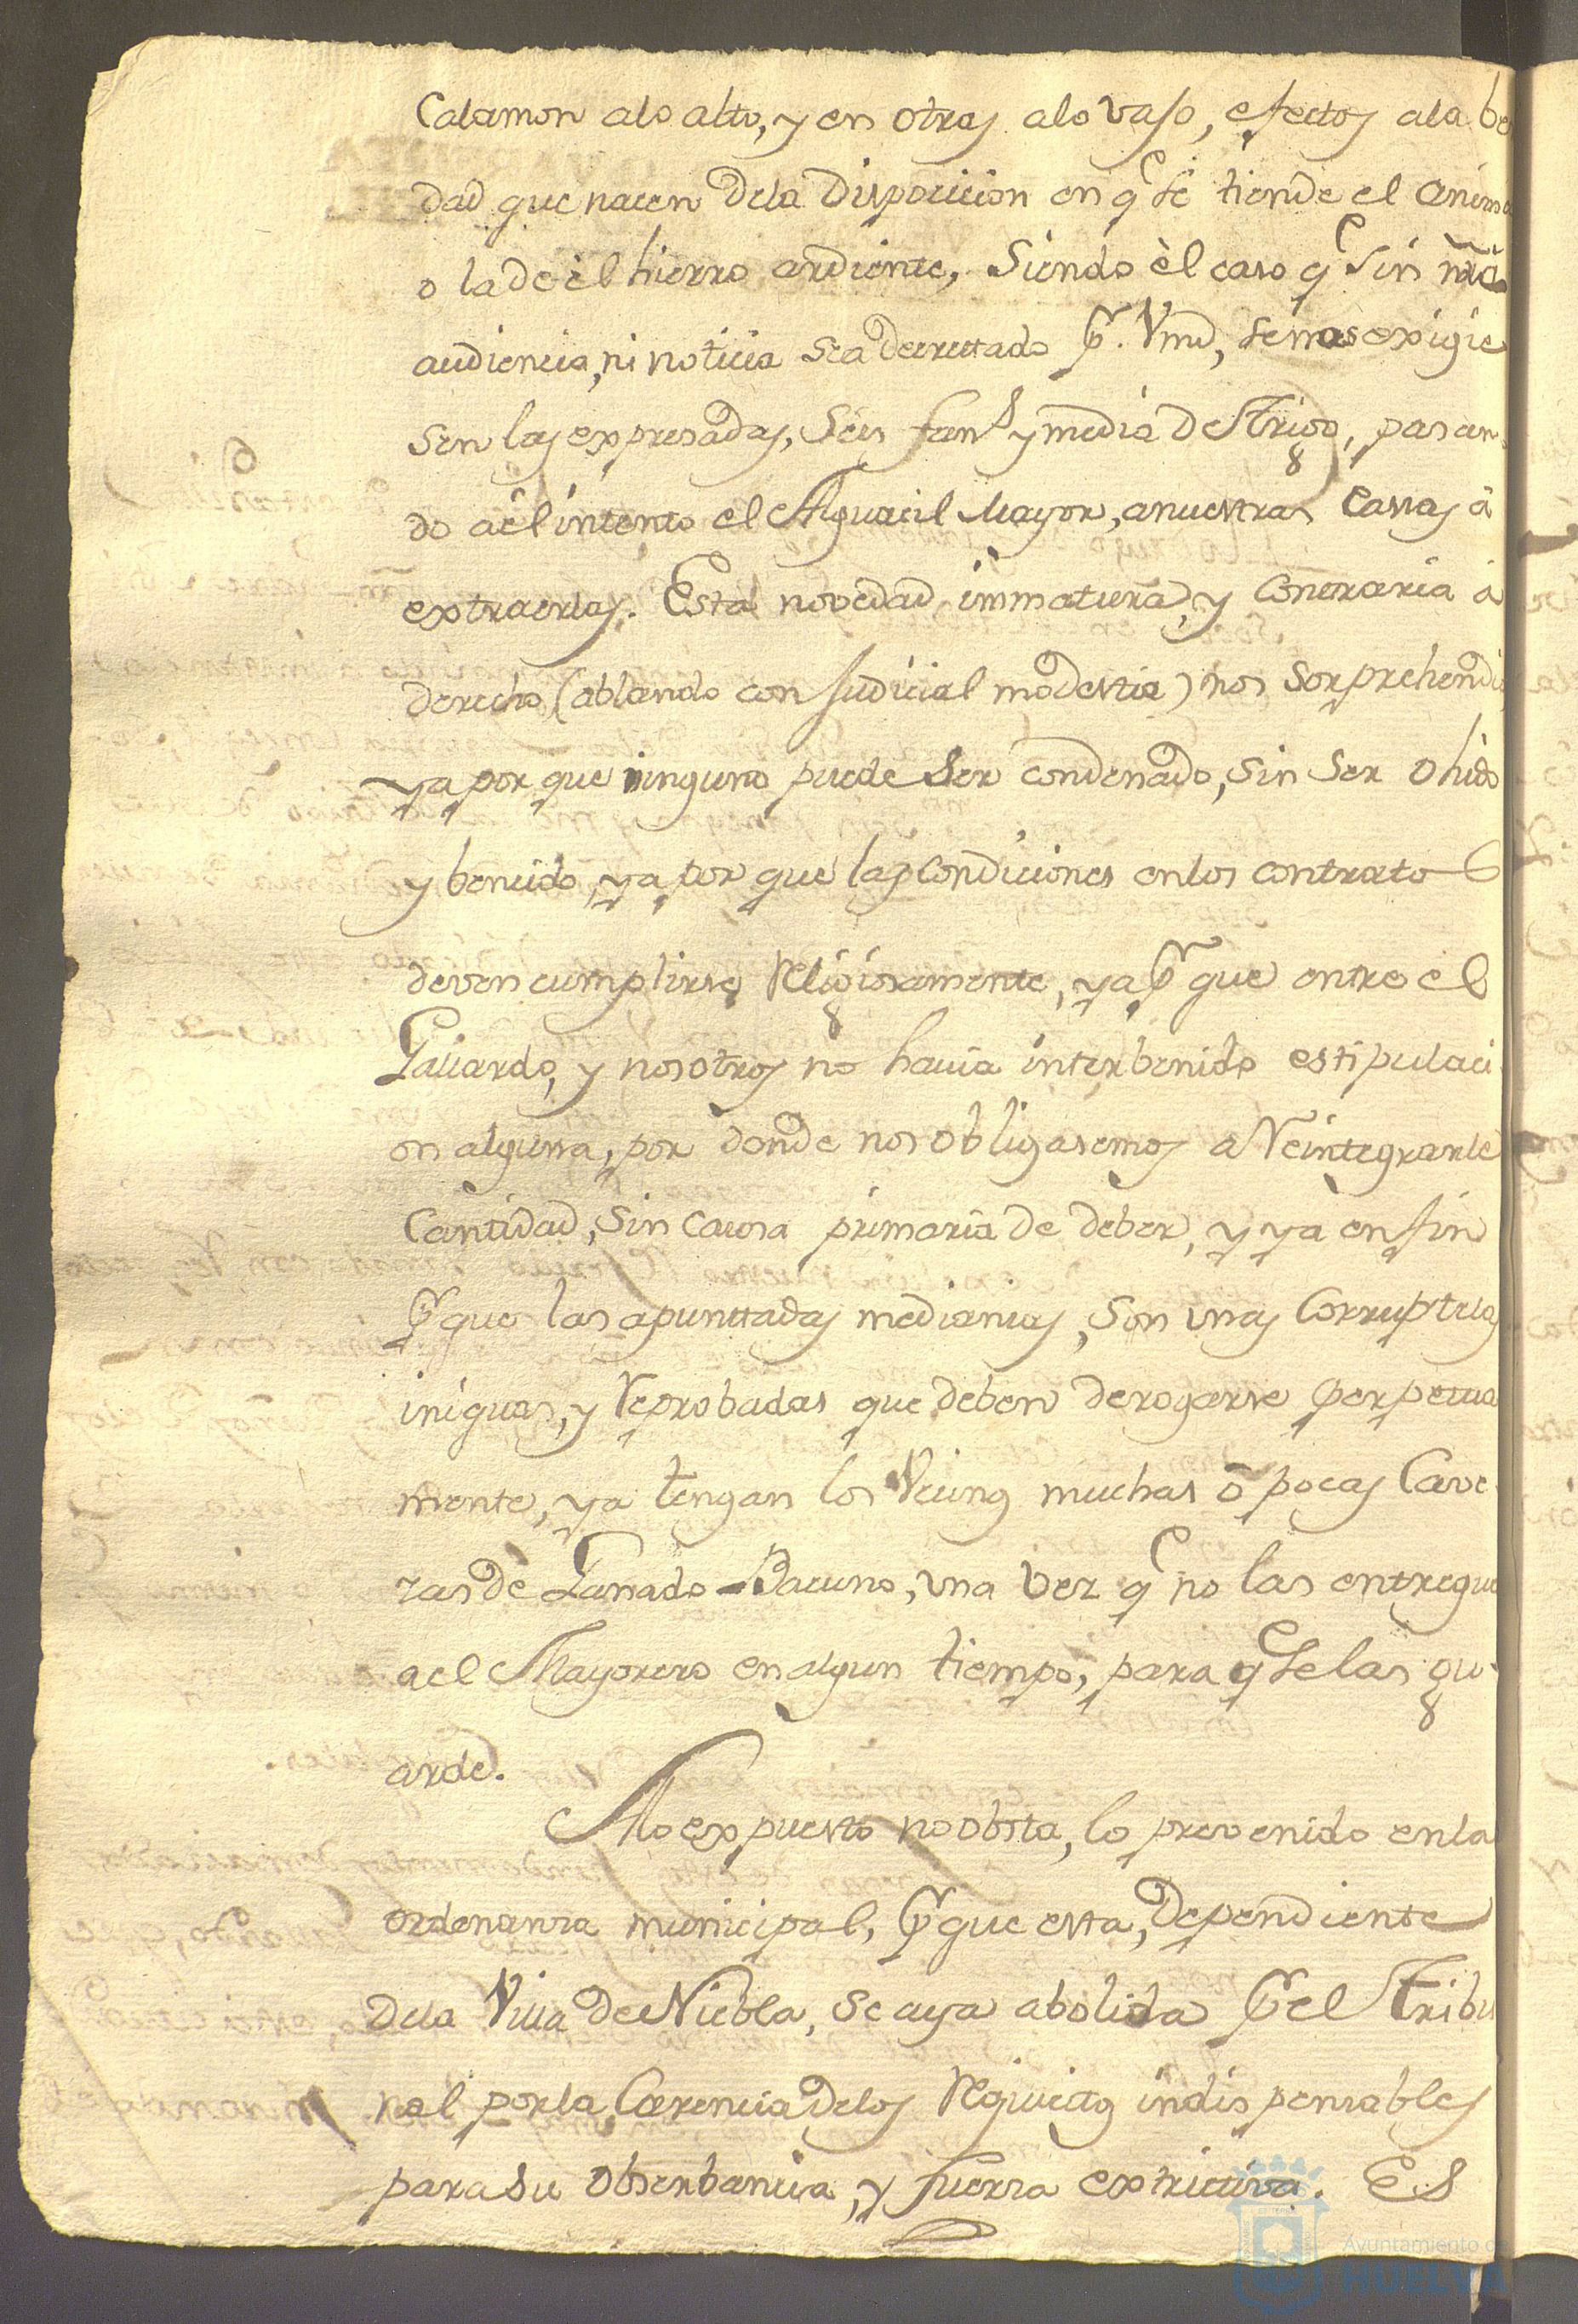 Calamon alo alto, y en otras alo vaso, efectos ala be
dad que nacen dela Disposicion en q se tiende el anima
o la de èl hierro ardiente, Siendo èl caso q sin nrã
audiencia, ni noticia sea decretado pr. Vmd, se nos exigie
sen las expresadas, Seis fans y media de Trigo, pasan
do aèl intento el Alguacil Mayor, a nuestras Casas à
extraerlas. Esta novedad immatura, y Contraria à
derecho (ablando con Judicial modestia) nos Sorprehendio
ya por que ninguno puede Ser condenado, sin Ser ohido
y bencido, ya por que las condiciones en los contratos
deven cumplirse Religiosamente, ya pr que entre el
Gallardo, y nosotros no havia interbenido estipulaci
on alguna, por donde nos obligasemos a Reintegrarle
Cantidad, Sin Causa primaria de deber, y ya en fin
pr que las apuntadas medianias, Son unas Corruptelas
iniquas, y Reprobadas que deben derogarse perpetua
mente, ya tengan los Vecinos muchas ò pocas Cave
zas de Ganado Bacuno, una vez q no las entregue
ael Mayorero en algun tiempo, para q se las gu
arde.
Alo expuesto no obsta, lo prevenido en la
ordenanza municipal, pr que esta, Dependiente
dela Villa de Niebla, se aya abolida pr el Tribu
nal por la Carencia delos Requicitos indispensables
para su obserbancia, y fuerza extrictiva. Es
Ayuntamiento de
HUELVA